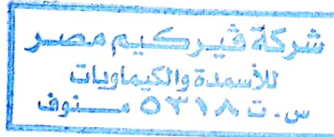 شركة ڤيركيم مصر
للأسمدة والكيماويات
س.ت ٥٣١٨ منوف